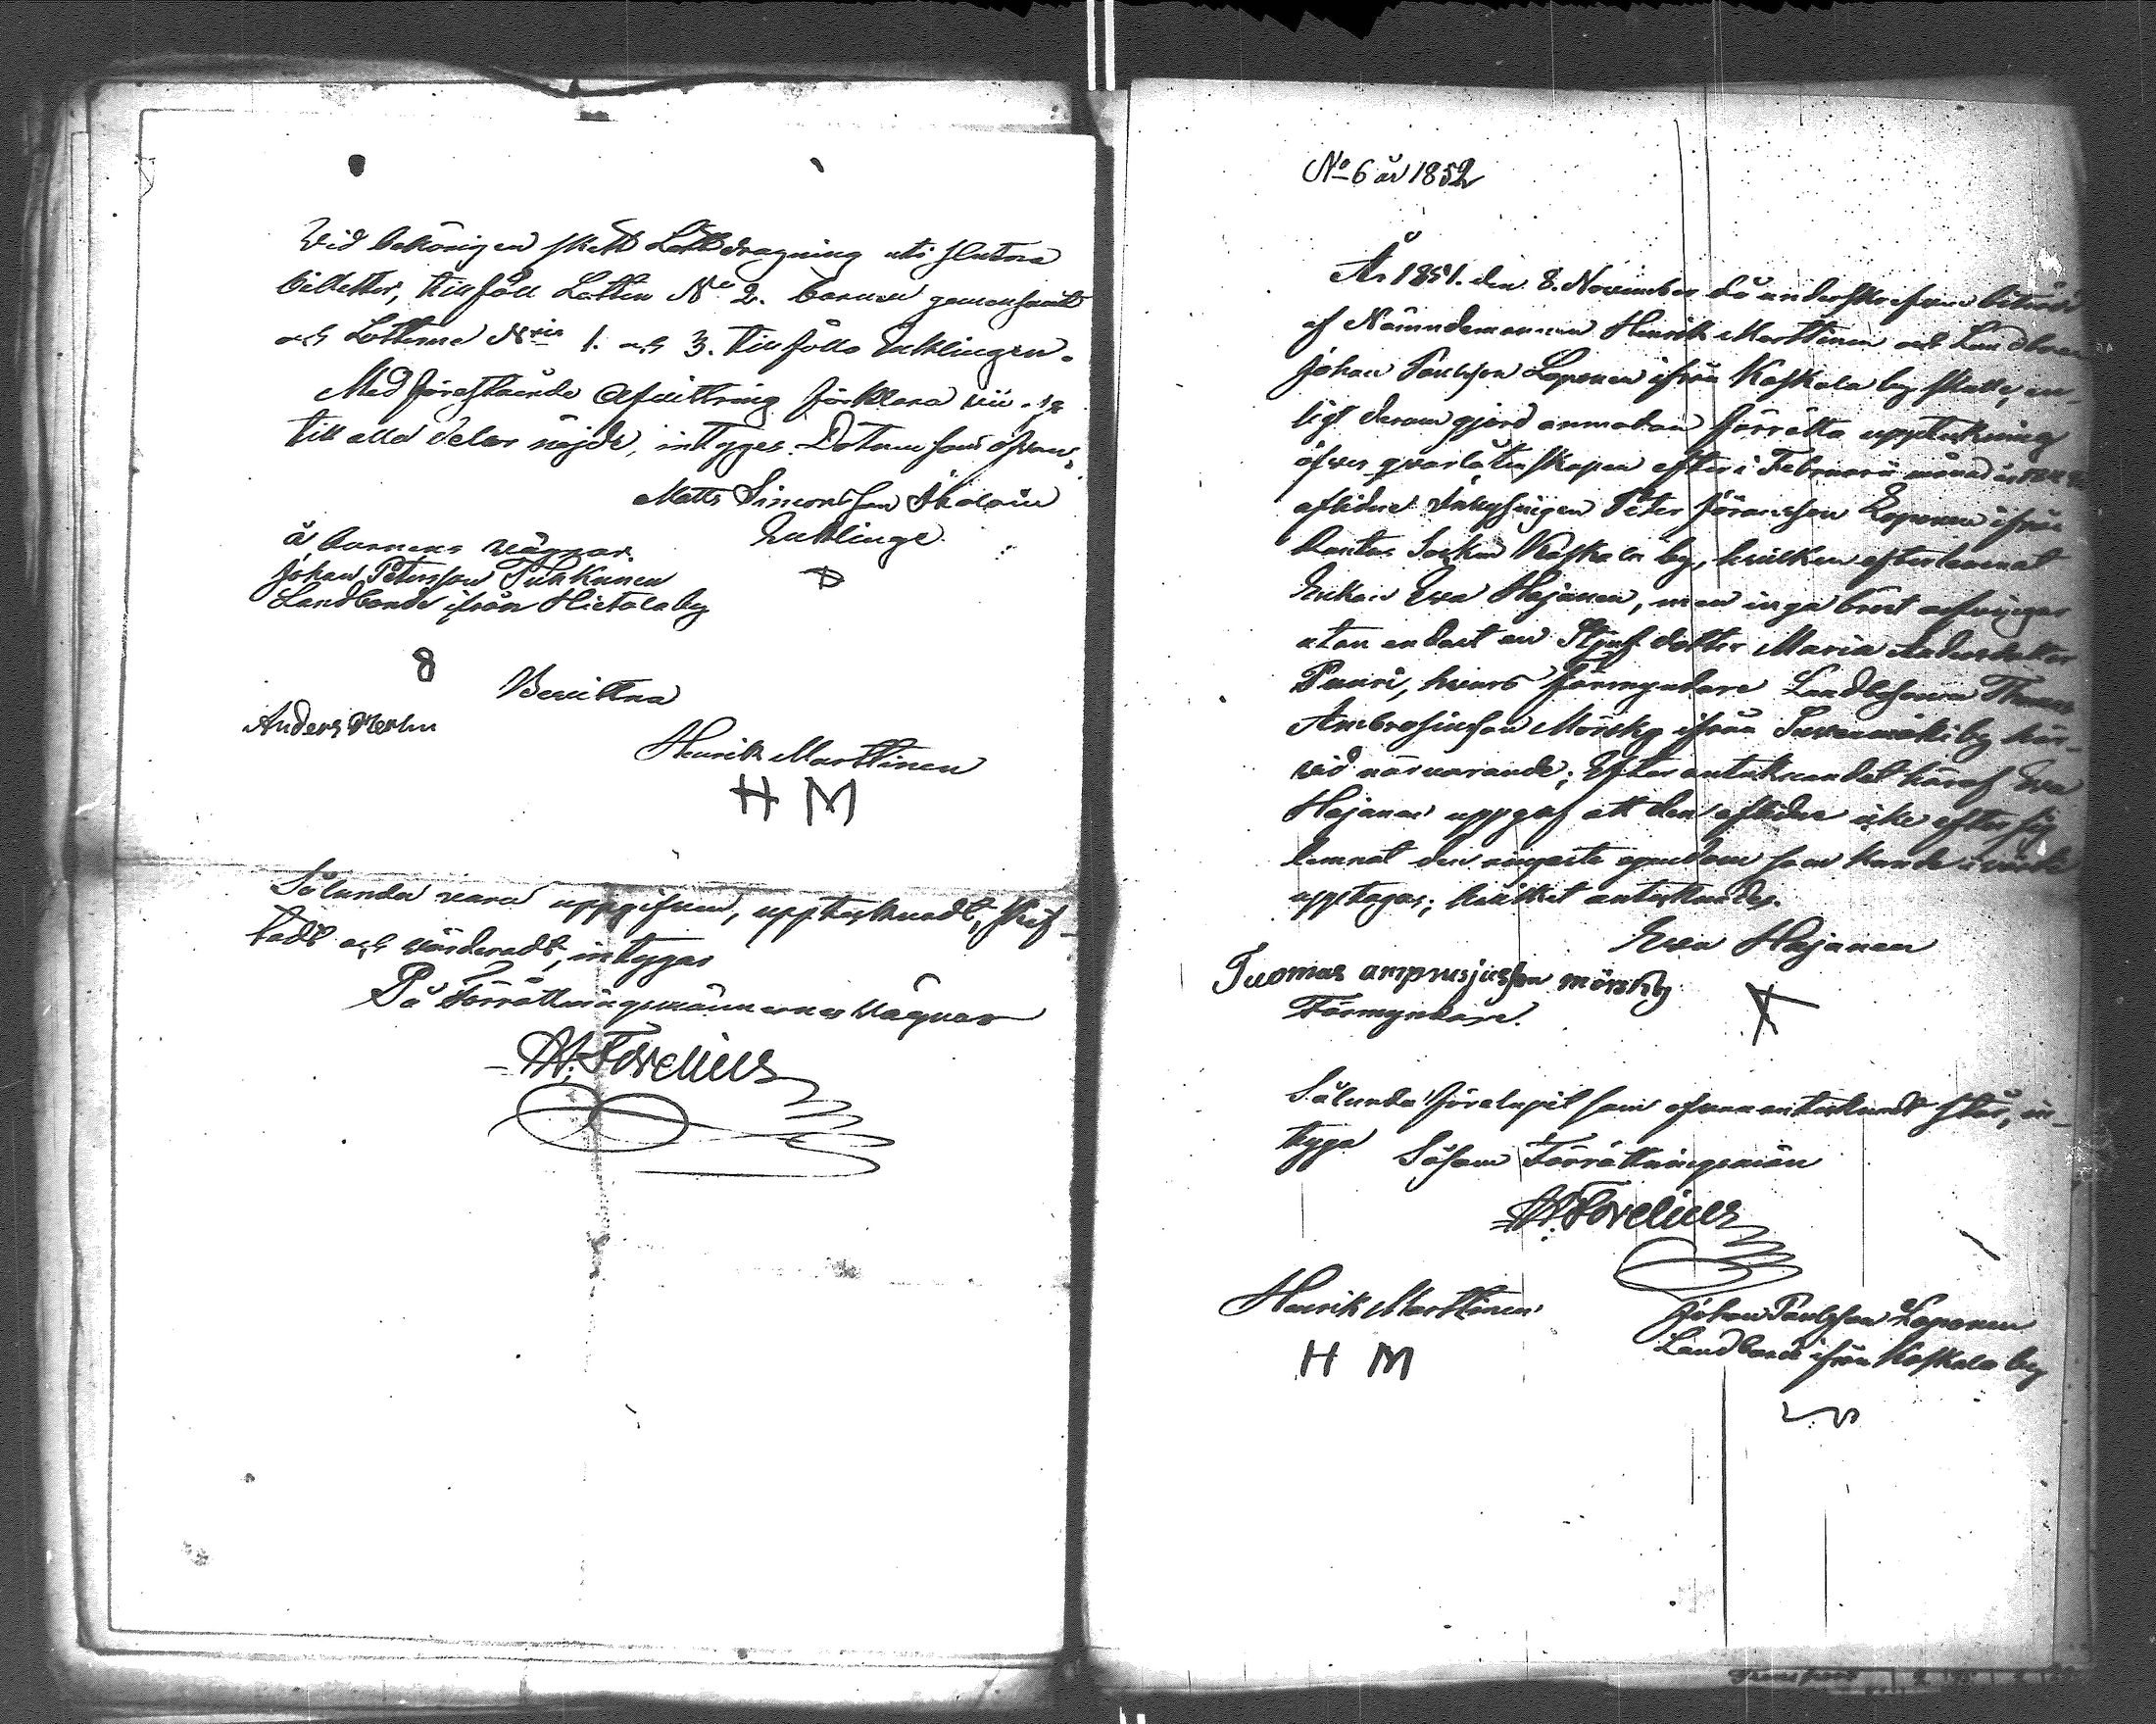 Vid behörigen skett Lottdragning uti slutna
billetter, tillföll Lotten No 2. barnen gemensamt
och Lotterne N:ris 1. och 3. tillföllo Enklingen.
Med förestående afvittring förklara vi oss
till alla delar nöjde, intyges. Datum som ofvan.
Matts Simonsson Ikoläin
Enklinge.
å barnens vägnar
Johan Petersson Tuhkunen
Landbonde ifrån Hietala by
Bevittna
Anders
Henrik Marttinen
H M
Sålunda vara uppgifvit, upptecknadt, skif-
tadt och värderadt, intygar
På Förrättningsmännernes vägnar
A. Forelius
No 6 år 1852
År 1851. den 8. November då underskrefven biträdd
af Nämndemannen Henrik Marttinen och Landbonden
Johan Paulsson Loponen ifrån Kaskala by skulle, en-
ligt derom gjord anmodan förrätta uppteckning
öfver qvarlåtenskapen efter i Februarii månad
aflidne Inhysingen Peter Göransson Loponen ifrån
Socken Kaskala by, hvilken efterlemnat
Enkan Eva Hajanen, men inga bröst arfvingar
utan endast en Stjuf dotter Maria Andersdotter
Pauri, hvars Förmyndare Landbonden Thomas
Ambrosiusson Mörsky ifrån by här-
vid närvarande; Efter antecknandet häraf Eva
Hajanen uppgaf att den aflidne icke efter sig
lemnat den ringaste egendom som kunde i värde
upptagas; hvilket antecknades.
Eva Hajanen
Tuomas amprusjusson mörsky
Förmyndare.
Sålunda förelupit som ofvan antecknadt står, in-
tyga
Såsom Förrättningsmän
A. Forelius
Henrik Marttinen
H M
Johan Paulsson Loponen
Landbonde ifrån Kaskala by